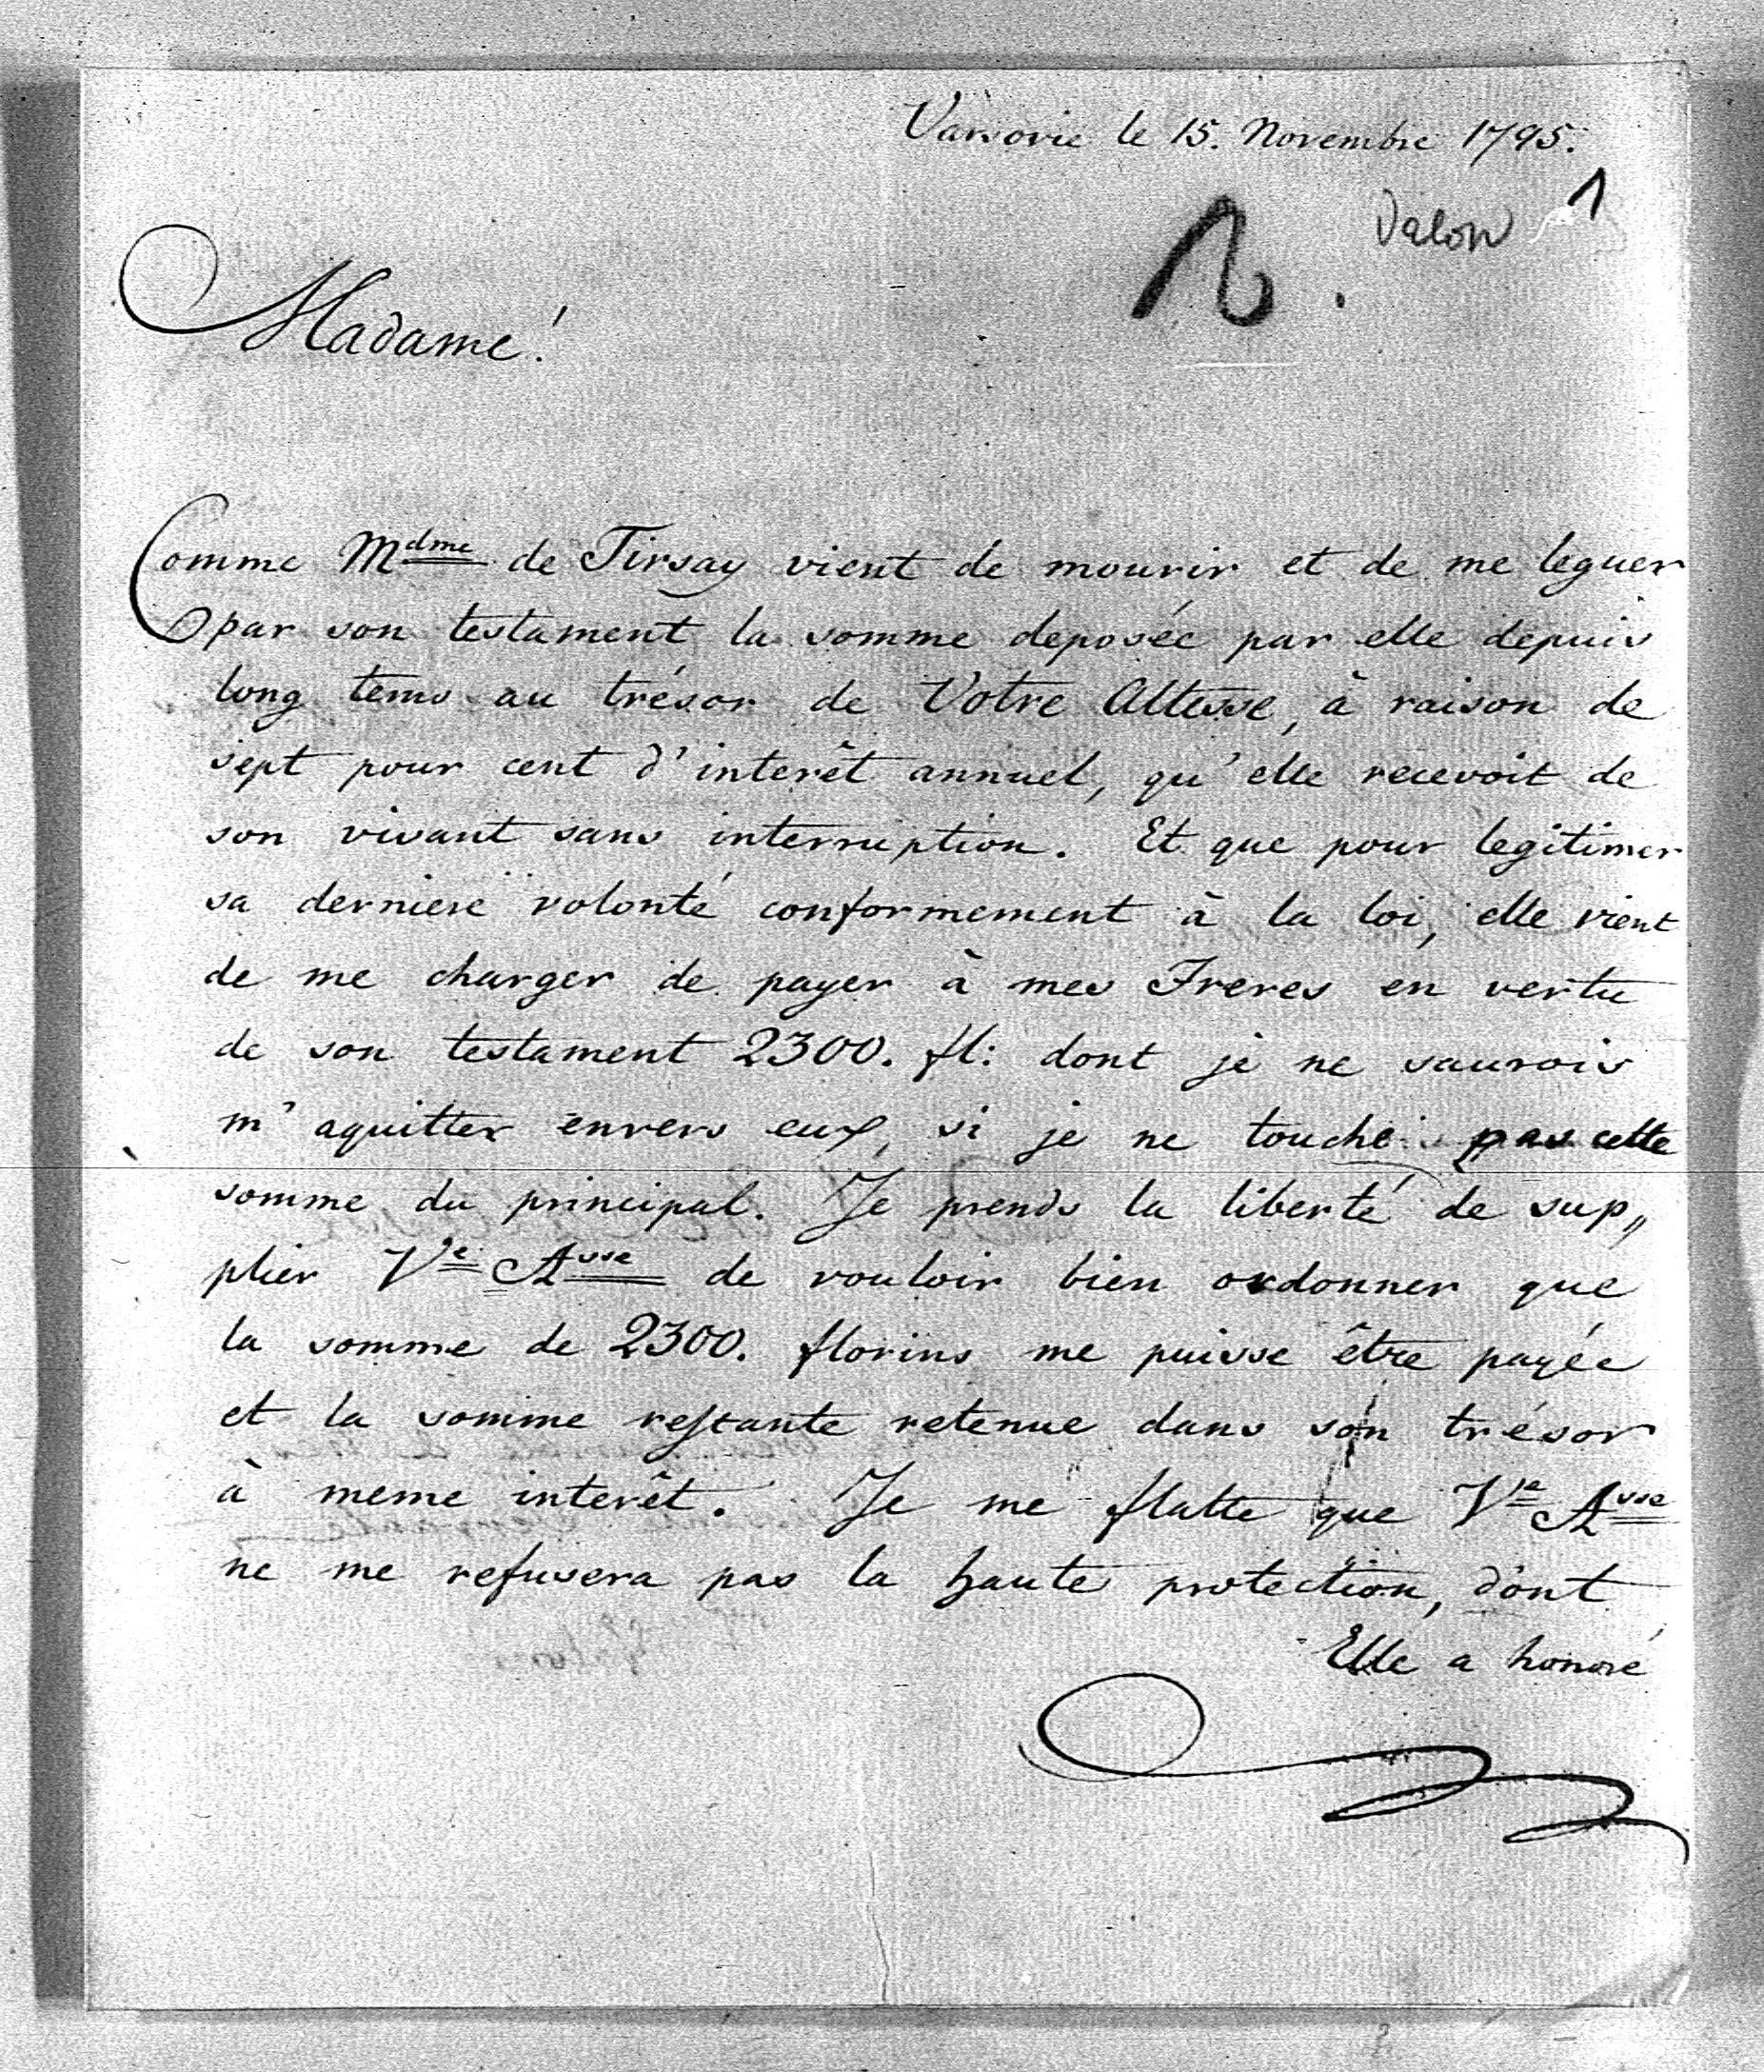 Varsovie le 15. Novembre 1795.
1
Valon
Madame!
Comme Mdme de Tirsay vient de mourir et de me leguer
par son testament la somme deposée par elle depuis
long tems au trésor de Votre Altesse, à raison de
sept pour cent d'interêt annuel, qu'elle recevoit de
son vivant sans interruption. Et que pour legitimer
sa derniere volonté conformement à la loi, elle vient
de me charger de payer à mes Freres en vertu
de son testament 2300. fl: dont je ne saurois
m'aquitter envers eux, si je ne touche pas cette
somme du principal. Je prends la liberté de sup„
plier Ve Asse de vouloir bien ordonner que
la somme de 2300. florins me puisse être payée
et la somme restante retenue dans son trésor
à meme interêt. Je me flatte que Ve Asse
ne me refusera pas la haute protection, dont
Elle a honoré